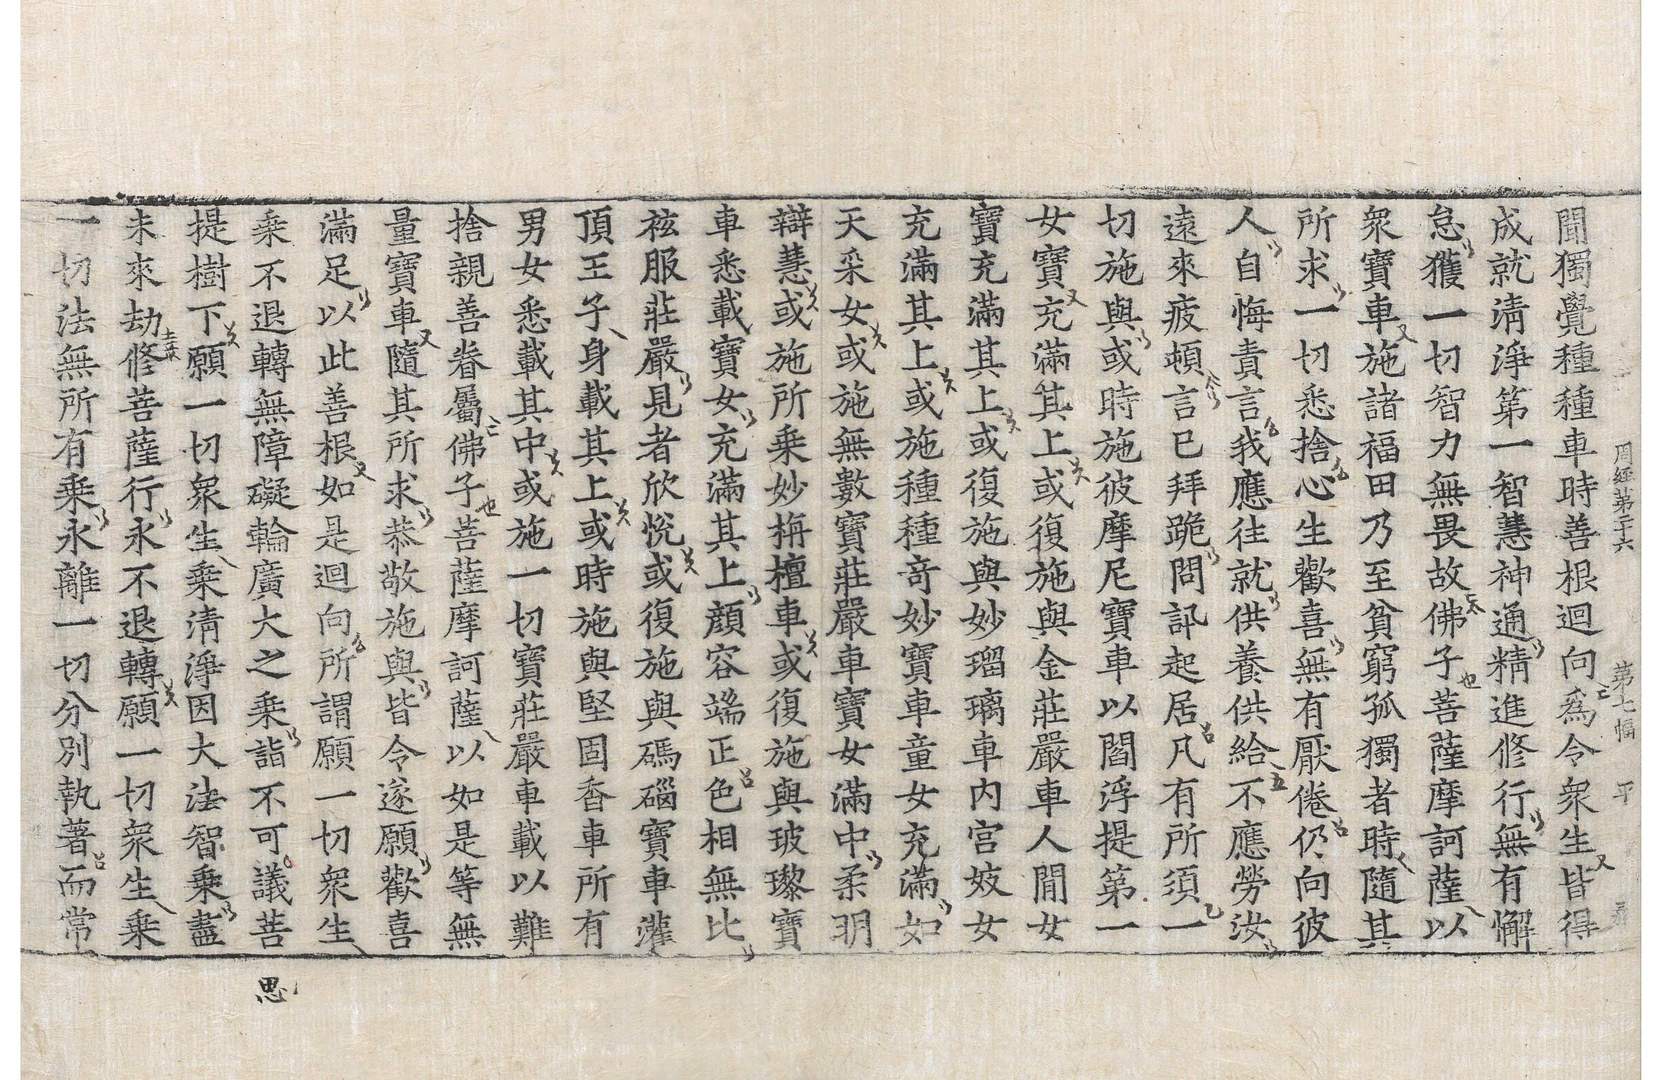 周經第二十六 第七幅 平
聞獨覺種種車時善根迴向爲令衆生皆得
成就淸淨第一智慧神通精進修行無有懈
怠獲一切智力無畏故佛子菩薩摩訶薩以
衆寶車施諸福田乃至貧窮孤獨者時隨其
所求一切悉捨心生歡喜無有厭倦仍向彼
人自悔責言我應往就供養供給不應勞汝
遠來疲頓言已拜跪問訊起居凡有所須一
切施與或時施彼摩尼寶車以閻浮提第一
女寶充滿其上或復施與金莊嚴車人間女
寶充滿其上或復施與妙瑠璃車内宮妓女
充滿其上或施種種奇妙寶車童女充滿如
天采女或施無數寶莊嚴車寶女滿中柔明
辯慧或施所乘妙栴檀車或復施與玻瓈寶
車悉載寶女充滿其上顔容端正色相無比
袨服莊嚴見者欣悅或復施與碼碯寶車灌
頂王子身載其上或時施與堅固香車所有
男女悉載其中或施一切寶莊嚴車載以難
捨親善眷屬佛子菩薩摩訶薩以如是等無
量寶車隨其所求恭敬施與皆令遂願歡喜
滿足以此善根如是迴向所謂願一切衆生
乘不退轉無障礙輪廣大之乘詣不可議菩
思
提樹下願一切衆生乘淸淨因大法智乘盡
未來劫修菩薩行永不退轉願一切衆生乘
一切法無所有乘永離一切分別執著而常